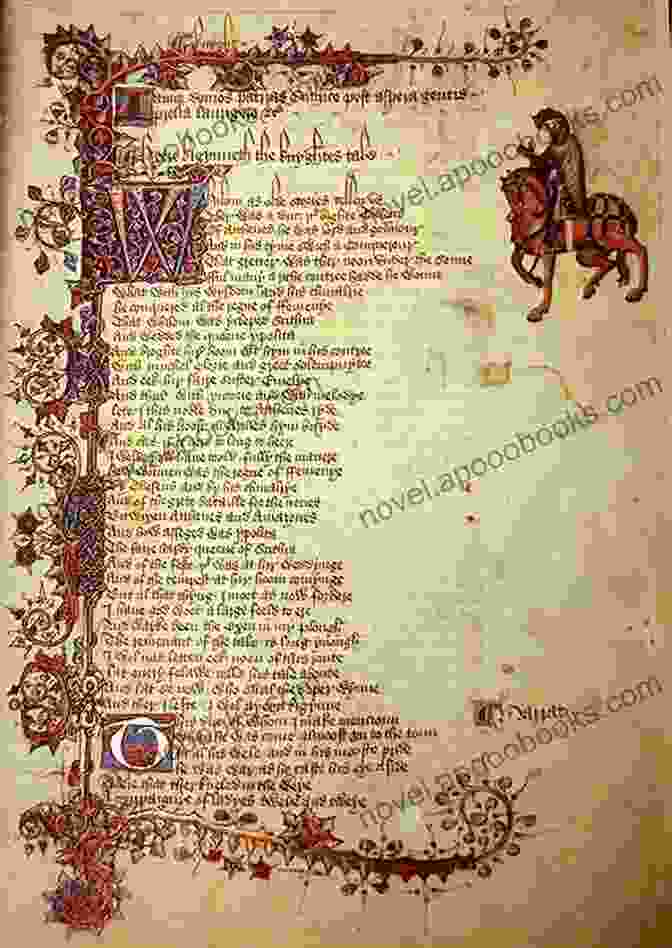 domos patrias post aspera gentis
Heere bigynneth the knyghtes tale
Whilom as olde stories tellen us
Ther was a duc þt highte
Of Atthenes he was lord and gouernour
And in his tyme swich a conquerour
That gretter was ther noon vnder the sonne
Ful many a riche contree hadde he wonne
What with his wysdom and his chiualrie
He conquered al the regne of ffemenye
That whilom was ycleped Scithia
And wedded the queene ypolita
And broghte hir hoom wt hym in his contree
With muchel glorie and greet solempnytee
And eek hir faire suster Emelye
And thus with victorie and with melodye
Lete I this noble duc to Atthenes ryde
And al his hoost in Armes hym bisyde
And certes if it nere to long to heere
I wolde haue toold fully the manere
How wonnen was the regne of ffemenye
By Theseus and by his chiualrye
And of the grete bataille for the nones
Bitwixen Atthenes and Amazones
And how asseged was ypolita
The faire queene of Scithia
And of the feste þt was at hir weddynge
And of the tempest at hir hoom comynge
But al that thyng I moot as now forbere
I haue god woot a large feeld to ere
And wayke been the oxen in my plough
The remenant of the tale is long ynough
I wol nat letten eek noon of this route
Lat euery felawe telle his tale aboute
And lat se now who shal the soper wynne
And ther I lefte I wol ayeyn bigynne
This duc of whom I make mencioun
Whan he was come almoost vn to the toun
In al his wele and in his mooste pride
He was war as he caste his eye aside
Where that ther kneled in the weye
A compaignye of ladyes tweye and tweye
novel.apooobooks.com
novel.apooobooks.com
novel.apooobooks.com